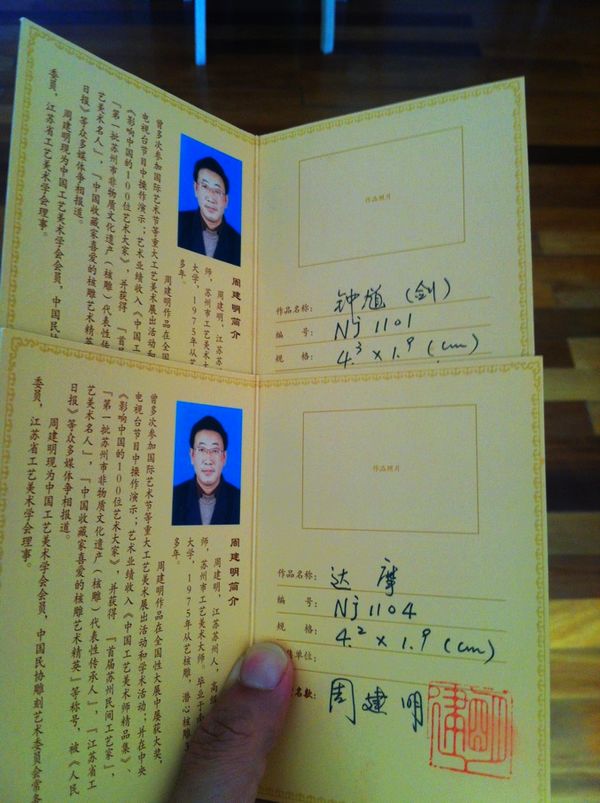 周建明简介
周建明，江苏苏
师，苏州市工艺美术大
大学，1975年从艺
多年。
周建明作品在全国
曾多次参加国际艺术节等重大工艺美术展出活动和
电视台节目中操作演示；艺术业绩收入《中国工
《影响中国的100位艺术大家》，并获得“首届
“第一批苏州市非物质文化遗产（核雕）代表性传承
艺美术名人”，“中国收藏家喜爱的核雕艺术精英
日报》等众多媒体争相报道。
周建明现为中国工艺美术学会会员，中国民协
委员，江苏省工艺美术学会理事。
作品照片
作品名称： 钟馗（剑）
编 号： Nj 1101
规 格： 4.3 x 1.9 (cm)
周建明简介
周建明，江苏苏州人，高级
师，苏州市工艺美术大师。毕业于
大学，1975年从艺核雕，潜心核雕3
多年。
周建明作品在全国性大展中屡获大奖，
曾多次参加国际艺术节等重大工艺美术展出活动和学术活动；并在中央
电视台节目中操作演示；艺术业绩收入《中国工艺美术师精品集》、
《影响中国的100位艺术大家》，并获得“首届苏州民间工艺家”，
“第一批苏州市非物质文化遗产（核雕）代表性传承人”，“江苏省工
艺美术名人”，“中国收藏家喜爱的核雕艺术精英”等称号，被《人民
日报》等众多媒体争相报道。
周建明现为中国工艺美术学会会员，中国民协雕刻艺术委员会常务
委员，江苏省工艺美术学会理事。
作品照片
作品名称： 达摩
编 号： Nj 1104
规 格： 4.2 x 1.9 (cm)
单位：
名款： 周建明